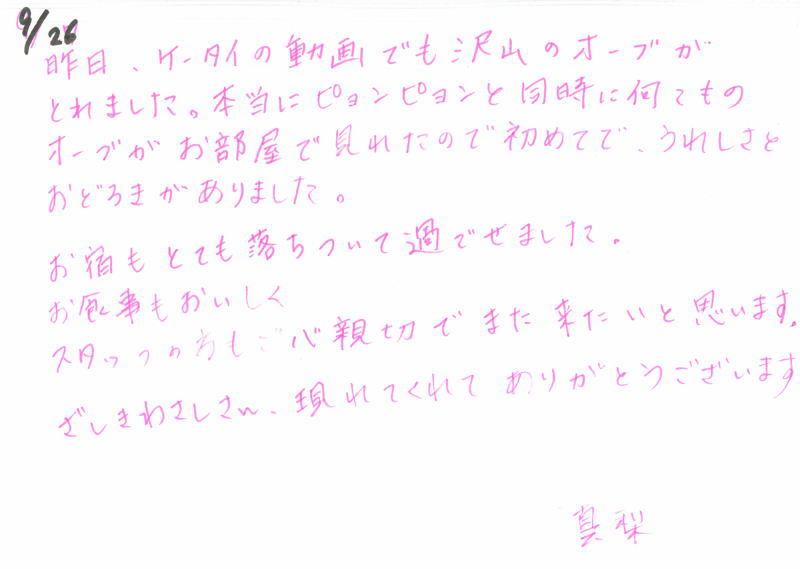 9/26
昨日、ケータイの動画でも沢山のオーブが
とれました。本当にピョンピョンと同時に何てもの
オーブがお部屋で見れたので初めてで、うれしさと
おどろきがありました。
お宿もとても落ちついて過ごせました。
お食事もおいしく
スタッフの方もご心親切でまた来たいと思います。
ざしきわさしさん、現れてくれてありがとうございます
真梨